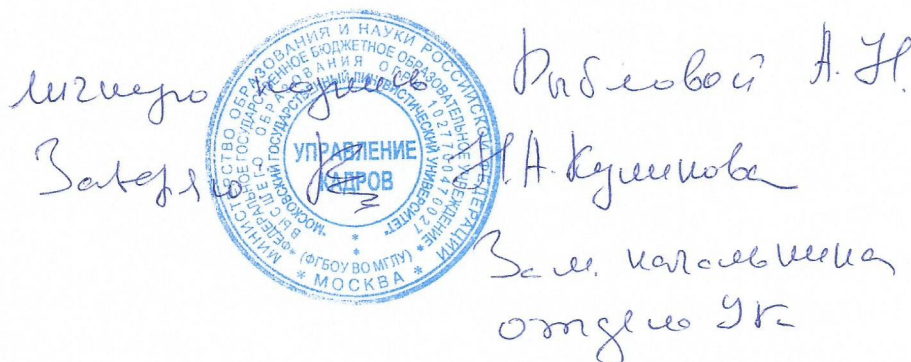 личную подпись Рыбловой А.Н.
Заверяю Н.А. Куликова
Зам. начальника
отдела УК
МИНИСТЕРСТВО ОБРАЗОВАНИЯ И НАУКИ РОССИЙСКОЙ ФЕДЕРАЦИИ
* МОСКВА *
"ФЕДЕРАЛЬНОЕ ГОСУДАРСТВЕННОЕ БЮДЖЕТНОЕ ОБРАЗОВАТЕЛЬНОЕ УЧРЕЖДЕНИЕ
ВЫСШЕГО ОБРАЗОВАНИЯ ОГРН 1027700470027
"МОСКОВСКИЙ ГОСУДАРСТВЕННЫЙ ЛИНГВИСТИЧЕСКИЙ УНИВЕРСИТЕТ"
(ФГБОУ ВО МГЛУ)
УПРАВЛЕНИЕ
КАДРОВ